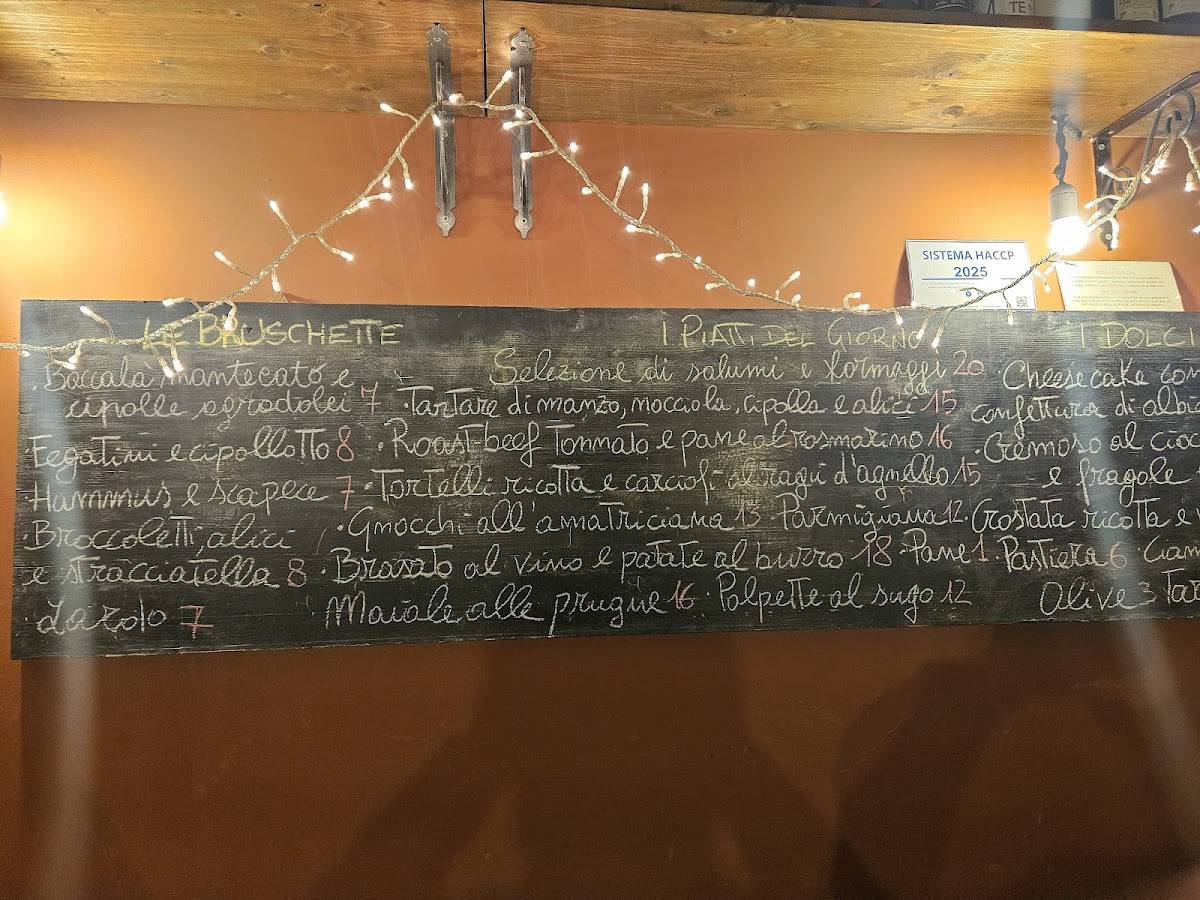 TE
SISTEMA HACCP
2025
LE BRUSCHETTE
Baccalà mantecato e
cipolle agrodolci 7
Fegatini e cipollotto 8
Hummus e scapece 7
Broccoletti, alici
e stracciatella 8
Lardo 7
I PIATTI DEL GIORNO
Selezione di salumi e formaggi 20
Tartare di manzo, nocciola, cipolla e alici 15
Roast-beef Tonnato e pane al rosmarino 16
Tortelli ricotta e carciofi al ragù d'agnello 15
Gnocchi all'amatriciana 13 · Parmigiana 12
Brasato al vino e patate al burro 18 · Pane 1
Maiale alle prugne 16 · Polpette al sugo 12
I DOLCI
Cheesecake con
confettura di albi
Cremoso al cioc
e fragole
Crostata ricotta e
Pastiera 6 · Ciam
Olive 3 Tar